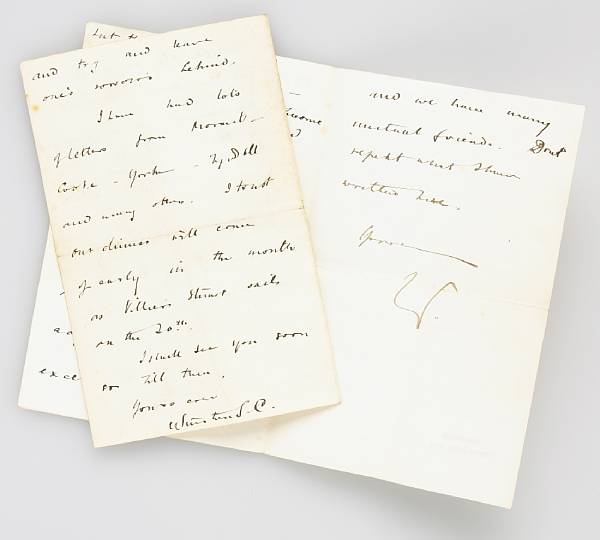 and try and leave
one's sorrows behind.
I have had lots
of letters from
Cooke - Yorke -
and many others. I trust
our dinner will come
off early in the month
as Villiers Stuart sails
on the 20th.
I shall see you soon
so till then.
Yours ever
Winston S. C.
but
and we have many
mutual friends. Dont
repeat what I have
written here.
Yours
W.
exce